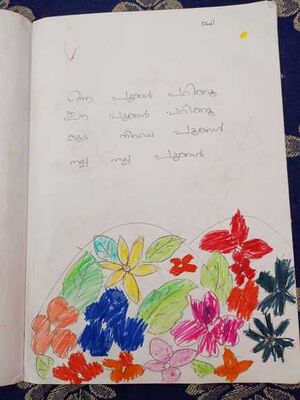 ആ പൂക്കൾ പറിക്കൂ
ഈ പൂക്കൾ പറിക്കൂ
നിറയെ പൂക്കൾ
നല്ല നല്ല പൂക്കൾ